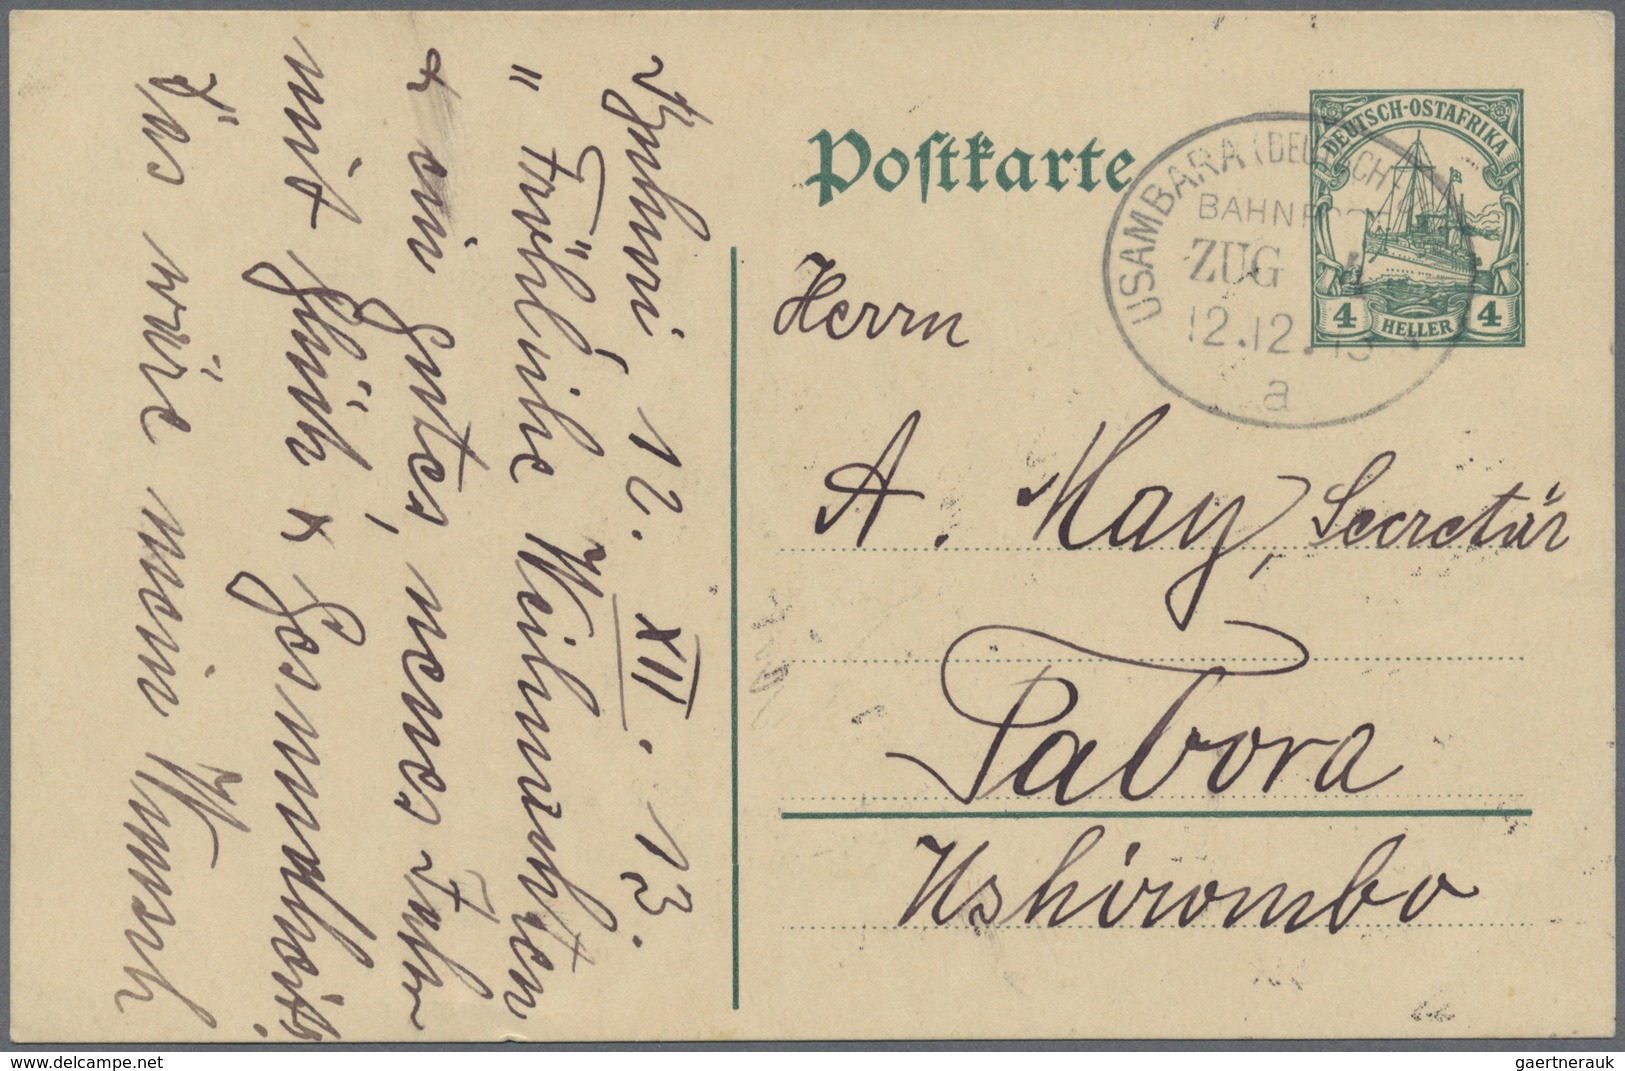 Postkarte
DEUTSCH-OSTAFRIKA
4 HELLER 4
USAMBARA (DEUTSCH-
BAHNPOST
ZUG
12.12.13
a
Herrn
A. May, Secretär
Tabora
Ushirombo
Buhuri, 12. XII. 13.
"Fröhliche Weihnachten"
& ein gutes, neues Jahr
mit Glück & Gesundheit,
Das wäre mein Wunsch
gaertnerauk